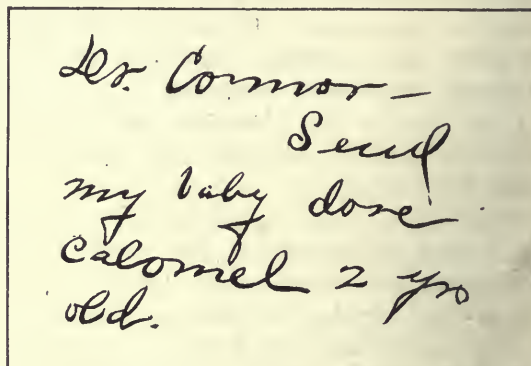 Dr. Connor –
Send
my baby dose
calomel 2 yrs
old.